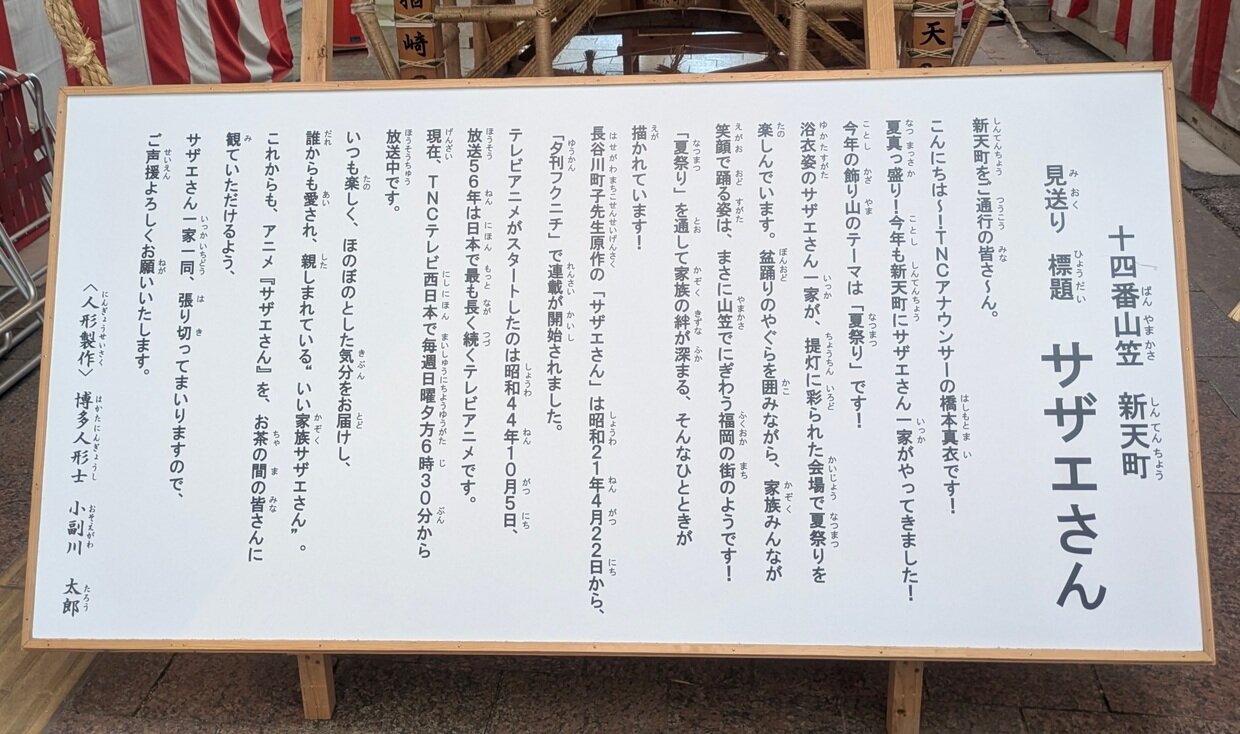 十四番山笠 新天町
見送り 標題 サザエさん
新天町をご通行の皆さ～ん。
こんにちは～！TNCアナウンサーの橋本真衣です！
夏真っ盛り！今年も新天町にサザエさん一家がやってきました！
今年の飾り山のテーマは「夏祭り」です！
浴衣姿のサザエさん一家が、提灯に彩られた会場で夏祭りを
楽しんでいます。盆踊りのやぐらを囲みながら、家族みんなが
笑顔で踊る姿は、まさに山笠でにぎわう福岡の街のようです！
「夏祭り」を通して家族の絆が深まる、そんなひとときが
描かれています！
長谷川町子先生原作の「サザエさん」は昭和21年4月22日から、
「夕刊フクニチ」で連載が開始されました。
テレビアニメがスタートしたのは昭和44年10月5日、
放送56年は日本で最も長く続くテレビアニメです。
現在、TNCテレビ西日本で毎週日曜夕方6時30分から
放送中です。
いつも楽しく、ほのぼのとした気分をお届けし、
誰からも愛され、親しまれている“いい家族サザエさん”。
これからも、アニメ『サザエさん』を、お茶の間の皆さんに
観ていただけるよう、
サザエさん一家一同、張り切ってまいりますので、
ご声援よろしくお願いいたします。
〈人形製作〉 博多人形士 小副川 太郎
崎
天